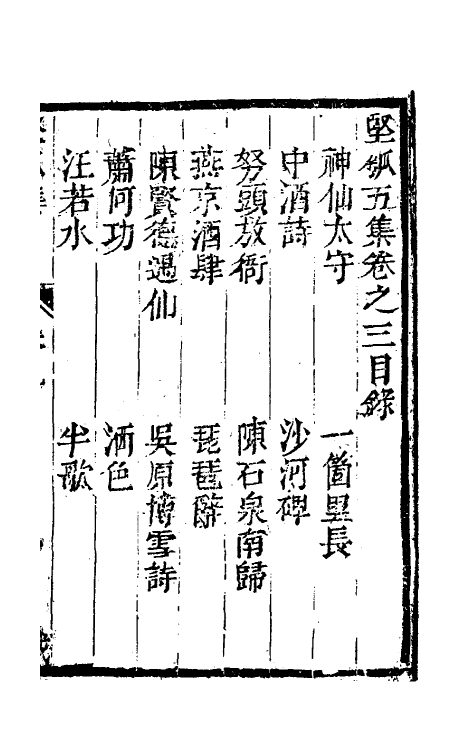 堅瓠五集卷之三目錄
神仙太守 一箇里長
中酒詩 沙河碑
努頭放衙 陳石泉南歸
燕京酒肆 琵琶辭
陳賢德遇仙 吳原博雪詩
蕭何功 酒色
汪若水 牛歌